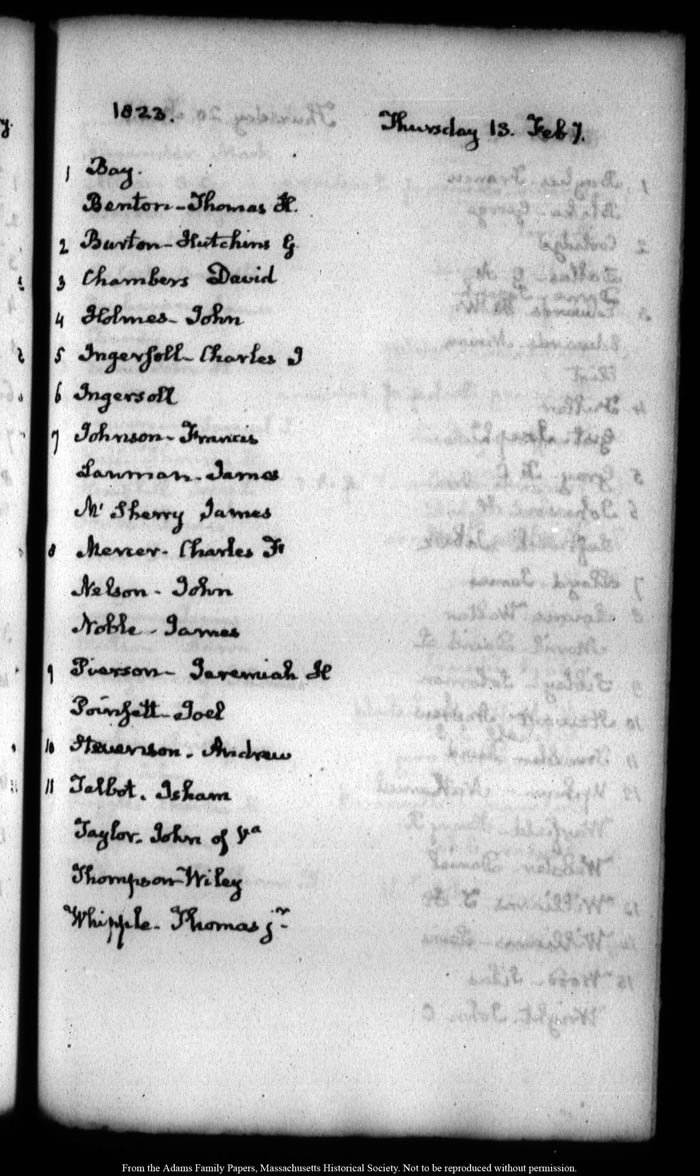 1823. Thursday 13. Feby.
1 Bay.
Benton - Thomas H.
2 Burton - Hutchins G
3 Chambers David
4 Holmes - John
5 Ingersoll - Charles J
6 Ingersoll
7 Johnson - Francis
Lanman - James
Mc Sherry James
8 Mercer - Charles F
Nelson - John
Noble - James
9 Pierson - Jeremiah H
Poinsett - Joel
10 Stevenson - Andrew
11 Talbot. Isham
Taylor. John of Va
Thompson Wiley
Whipple - Thomas jr
From the Adams Family Papers, Massachusetts Historical Society. Not to be reproduced without permission.